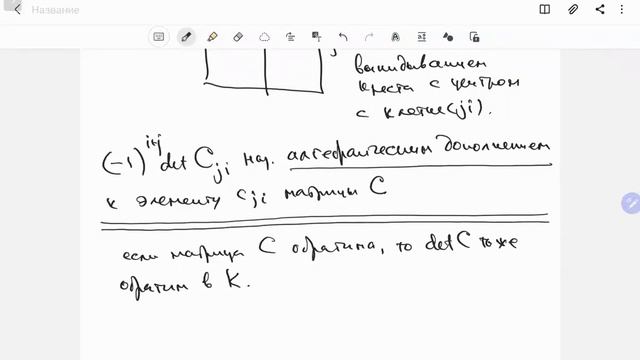 Название
выкидыванием
креста с центром
в клетке (ji).
(-1)^{i+j} det C_{ji} наз. алгебраическим дополнением
к элементу c_{ji} матрицы C
если матрица C обратима, то det C тоже
обратим в K.